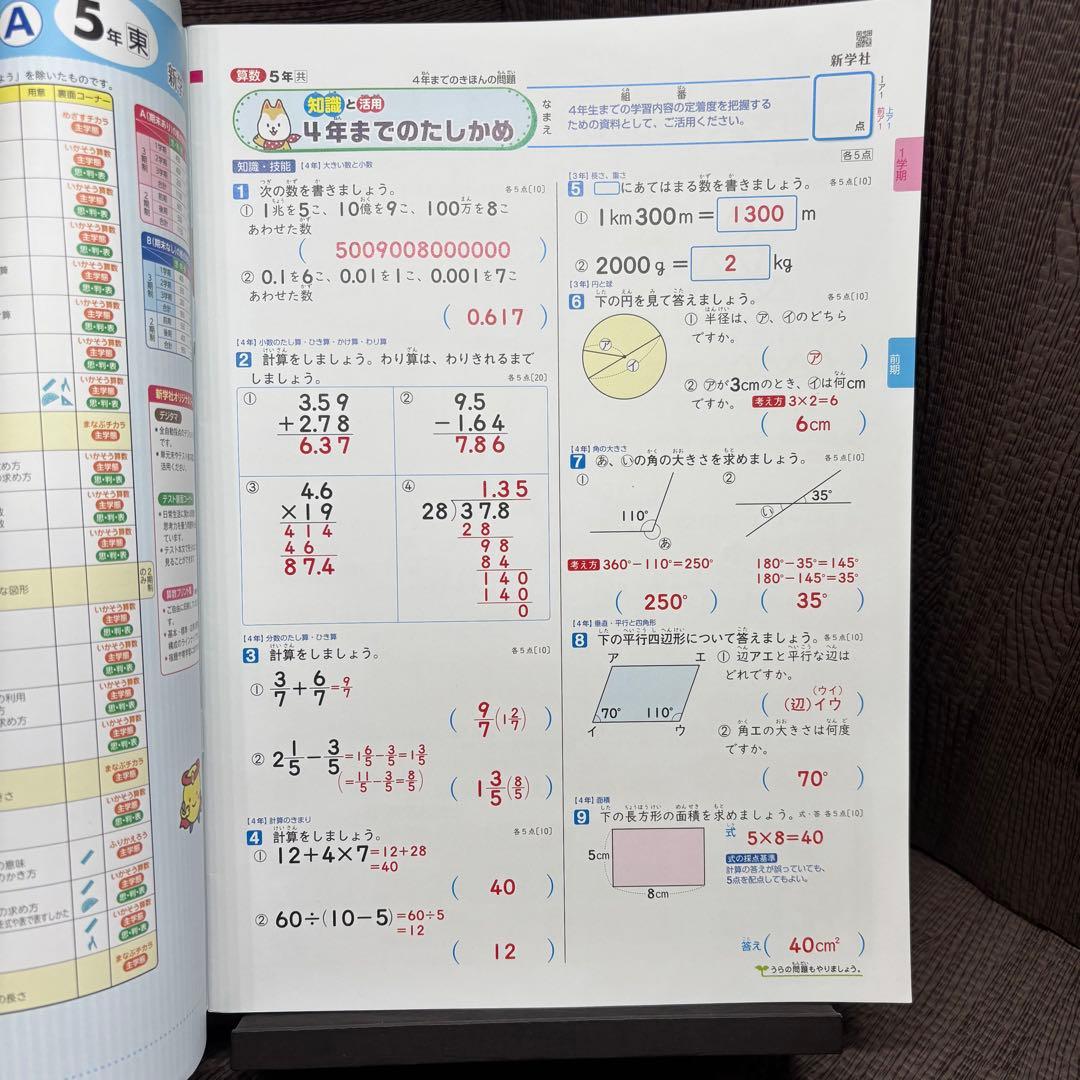 A 5年 東
ょう」を除いたものです。
用意 裏面コーナー
めざすチカラ
主学態
いかそう算数
主学態
思・判・表
まなぶチカラ
主学態
ふりかえろう
主学態
な図形
の利用
求め方
の意味
のかき方
の求め方
を式や表で表すしかた
の長さ
新学社オリジナル
デジタマ
算数 5年 共
4年までのきほんの問題
新学社
知識と活用
4年までのたしかめ
なまえ
組 番
4年生までの学習内容の定着度を把握する
ための資料として、ご活用ください。
点
各5点
1学期
前期
知識・技能 【4年】大きい数と小数
1 次の数を書きましょう。 各5点[10]
① 1兆を5こ、10億を9こ、100万を8こ
あわせた数
( 5009008000000 )
② 0.1を6こ、0.01を1こ、0.001を7こ
あわせた数
( 0.617 )
【4年】小数のたし算・ひき算・かけ算・わり算
2 計算をしましょう。わり算は、わりきれるまで
しましょう。 各5点[20]
① 3.59
+2.78
6.37
② 9.5
−1.64
7.86
③ 4.6
×19
414
46
87.4
④ 1.35
28)37.8
28
98
84
140
140
0
【4年】分数のたし算・ひき算
3 計算をしましょう。 各5点[10]
① 3/7+6/7=9/7
( 9/7(1 2/7) )
② 2 1/5−3/5=1 6/5−3/5=1 3/5
(=11/5−3/5=8/5)
( 1 3/5(8/5) )
【4年】計算のきまり
4 計算をしましょう。 各5点[10]
① 12+4×7=12+28
=40
( 40 )
② 60÷(10−5)=60÷5
=12
( 12 )
【3年】長さ、重さ
5 □にあてはまる数を書きましょう。 各5点[10]
① 1km300m=1300m
② 2000g=2kg
【3年】円と球
6 下の円を見て答えましょう。 各5点[10]
㋐
㋑
① 半径は、㋐、㋑のどちら
ですか。
( ㋐ )
② ㋐が3cmのとき、㋑は何cm
ですか。 考え方 3×2=6
( 6cm )
【4年】角の大きさ
7 あ、いの角の大きさを求めましょう。 各5点[10]
① 110°
あ
② 35°
い
考え方 360°−110°=250°
( 250° )
180°−35°=145°
180°−145°=35°
( 35° )
【4年】垂直・平行と四角形
8 下の平行四辺形について答えましょう。 各5点[10]
ア エ
70° 110°
イ ウ
① 辺アエと平行な辺は
どれですか。
(ウイ)
( (辺)イウ )
② 角エの大きさは何度
ですか。
( 70° )
【4年】面積
9 下の長方形の面積を求めましょう。 式・答 各5点[10]
5cm
8cm
式 5×8=40
式の採点基準
計算の答えが誤っていても、
5点を配点してもよい。
答え( 40cm² )
うらの問題もやりましょう。